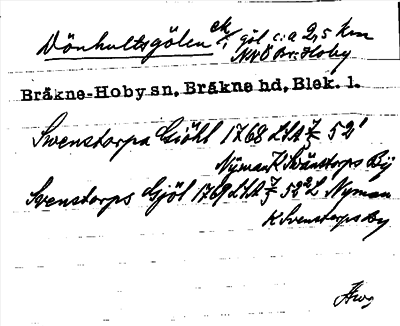 Dönhultsgölen göl c:a 2,5 km
NNÖ Br.-Hoby
Bräkne-Hoby sn, Bräkne hd, Blek. l.
Swenstorpa Giöhl 1768 LSA 52¹
Nyman K Swänstorps By
Svenstorps Gjöl 1769 LSA 52²L Nyman
K Svenstorps By